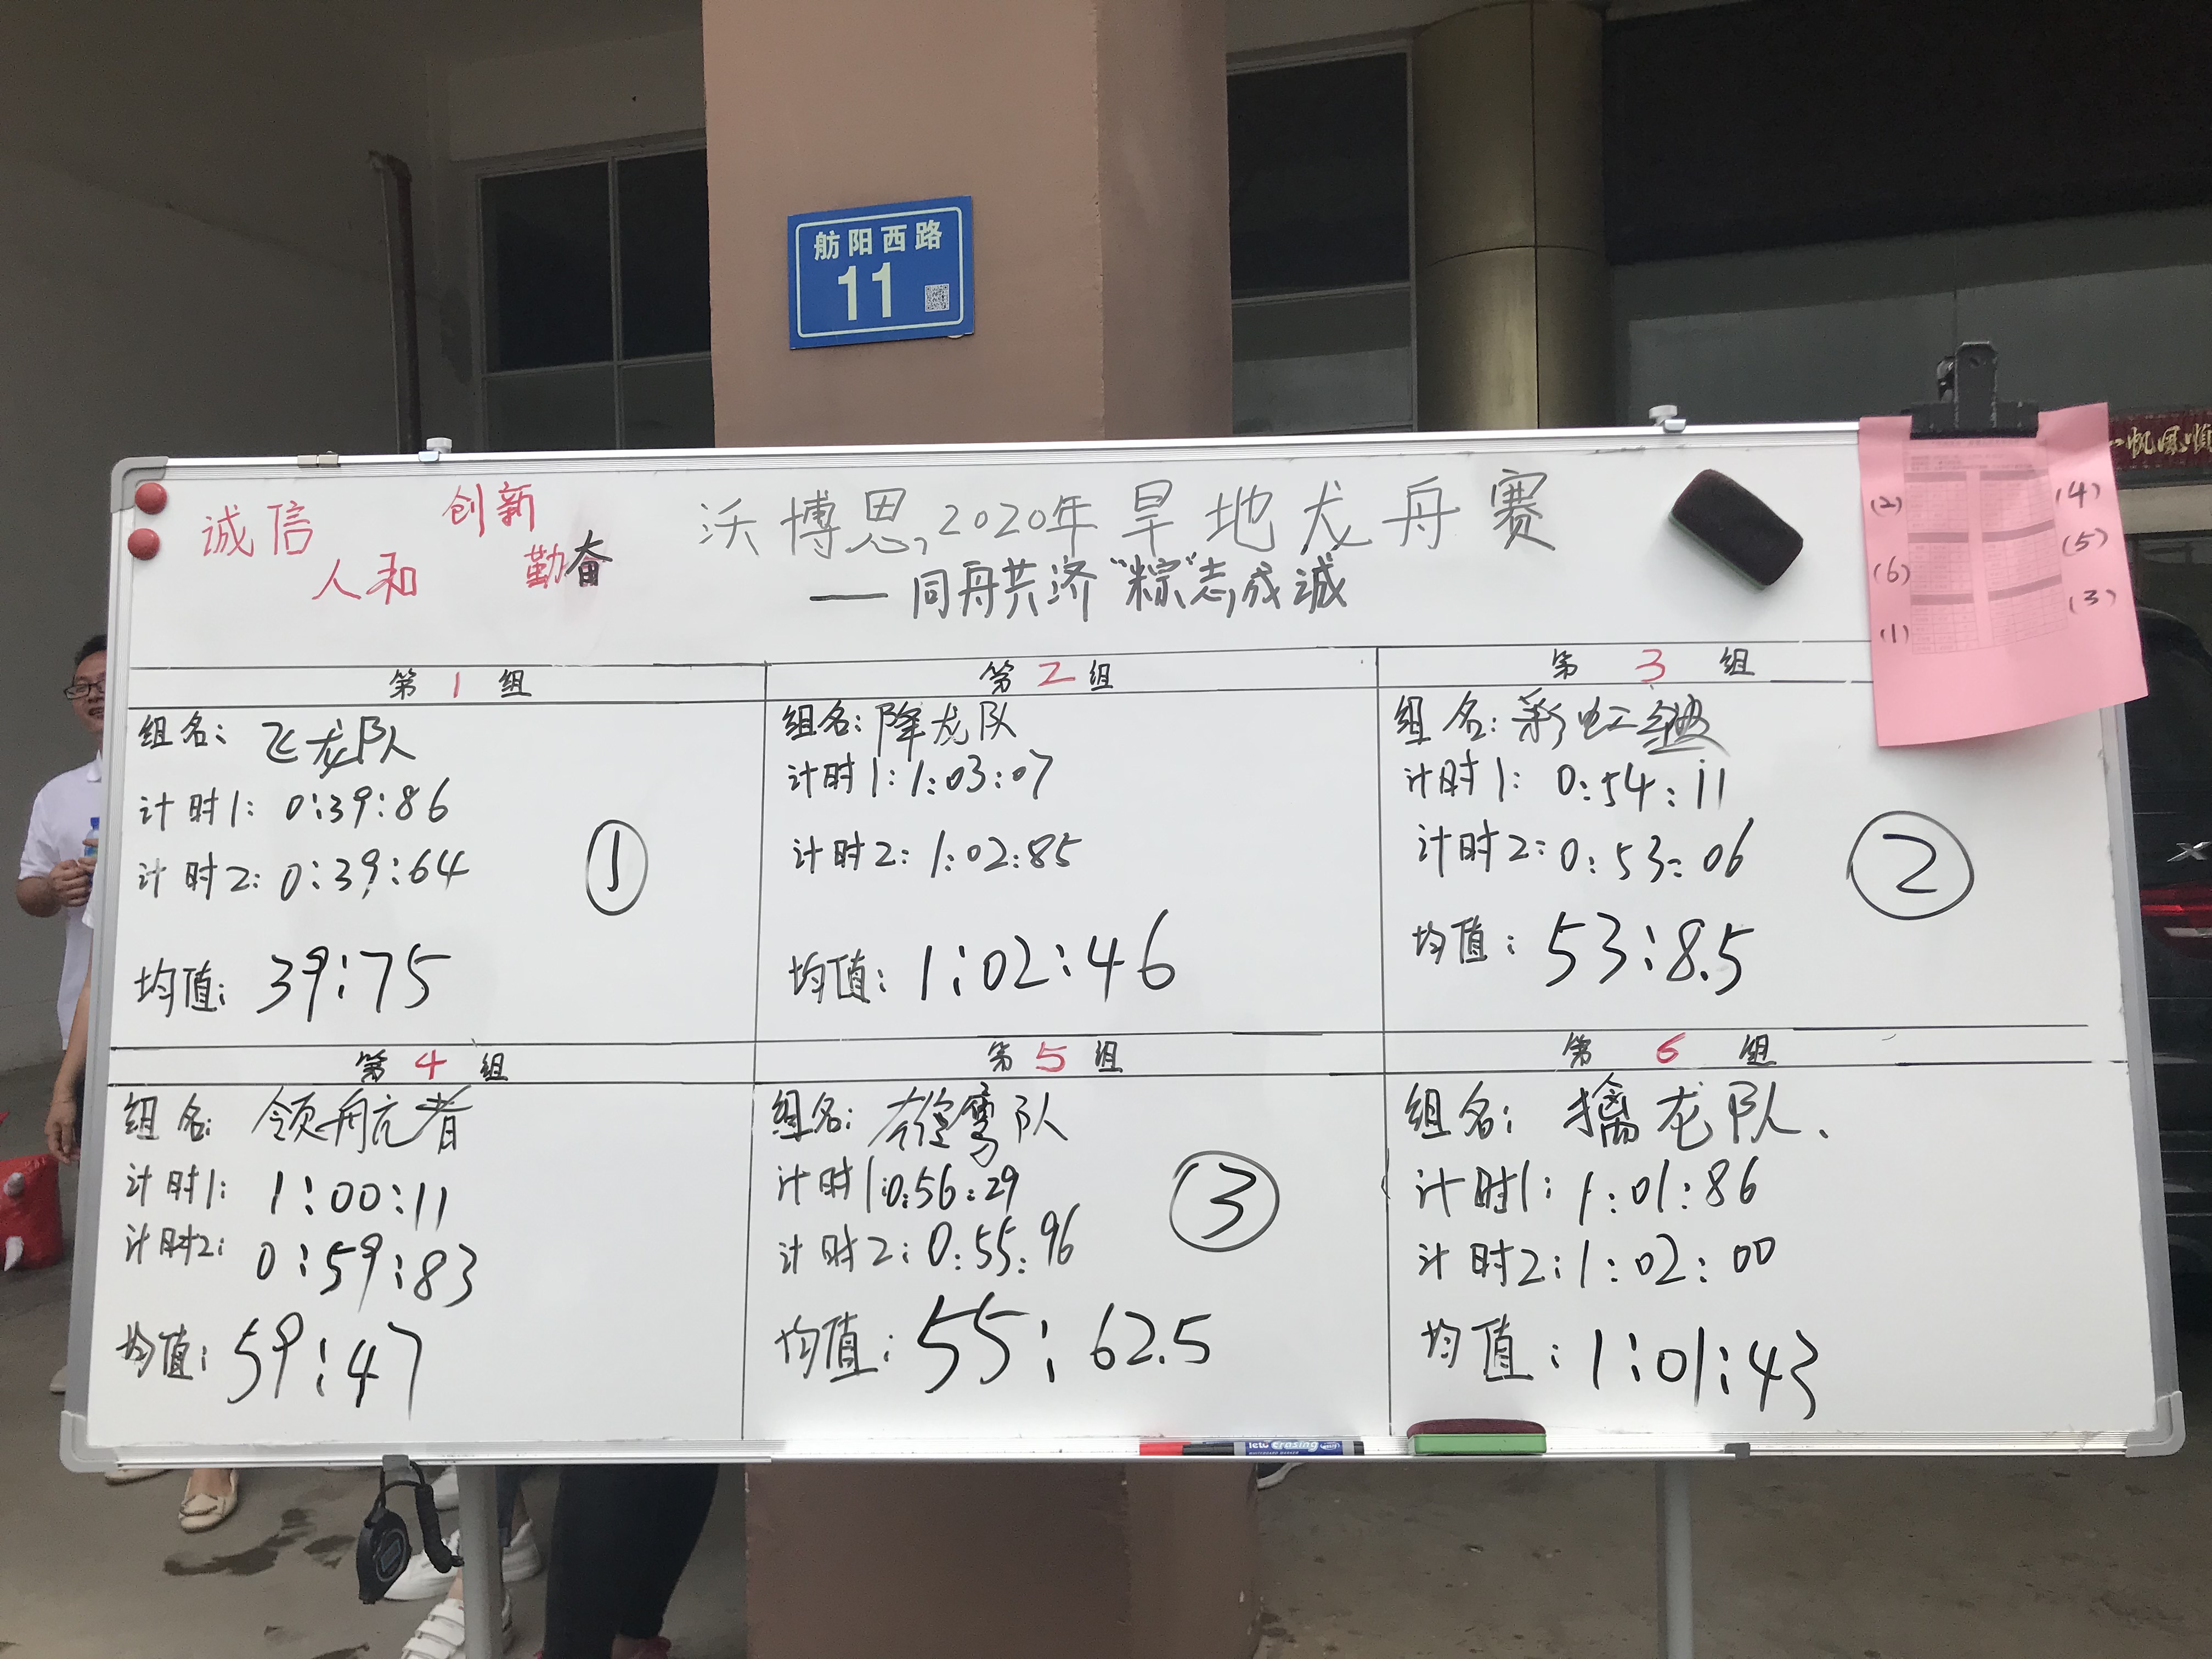 舫阳西路
11
一帆风顺
诚信 创新
人和 勤奋
沃博思,2020年旱地龙舟赛
——同舟共济“粽”志成诚
(2)
(4)
(5)
(6)
(3)
(1)
第1组
组名: 飞龙队
计时1: 0:39:86
计时2: 0:39:64
①
均值: 39:75
第2组
组名: 降龙队
计时1: 1:03:07
计时2: 1:02:85
均值: 1:02:46
第3组
组名: 彩虹
计时1: 0:54:11
计时2: 0:53:06
②
均值: 53:8.5
第4组
组名: 领航者
计时1: 1:00:11
计时2: 0:59:83
均值: 59:47
第5组
组名: 雄鹰队
计时1:0:56:29
计时2: 0:55:96
③
均值: 55:62.5
第6组
组名: 擒龙队、
计时1: 1:01:86
计时2: 1:02:00
均值: 1:01:43
erasing
WHITEBOARD MARKER